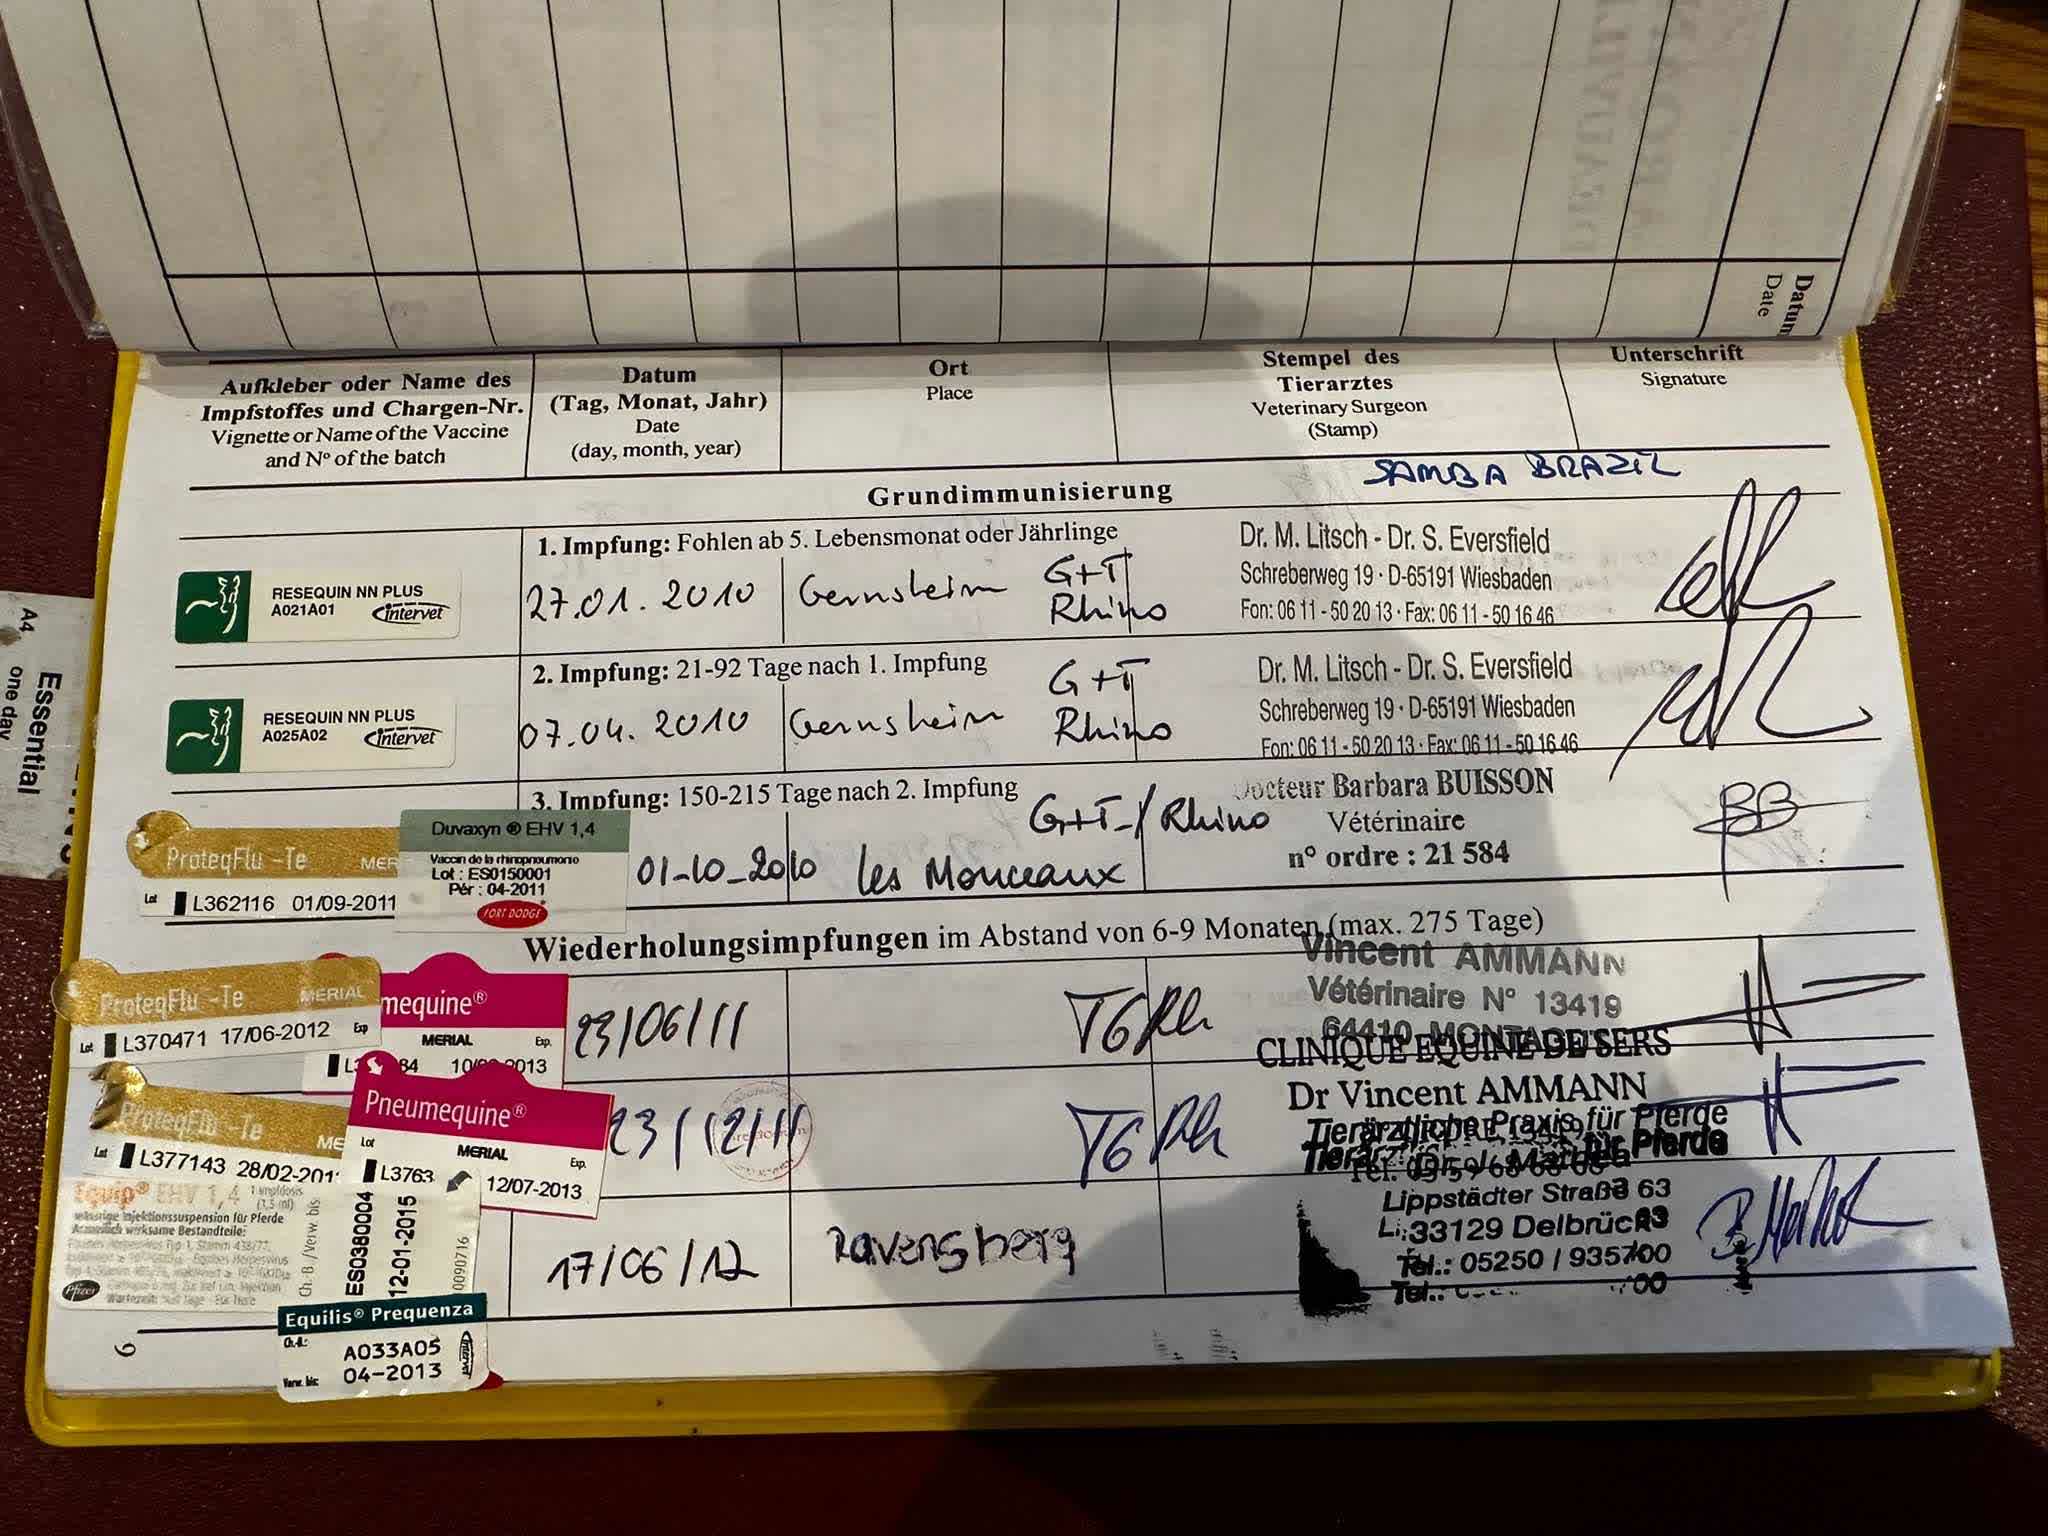 Datum
Date
Aufkleber oder Name des
Impfstoffes und Chargen-Nr.
Vignette or Name of the Vaccine
and Nº of the batch
Datum
(Tag, Monat, Jahr)
Date
(day, month, year)
Ort
Place
Stempel des
Tierarztes
Veterinary Surgeon
(Stamp)
Unterschrift
Signature
SAMBA BRAZIL
Grundimmunisierung
1. Impfung: Fohlen ab 5. Lebensmonat oder Jährlinge
RESEQUIN NN PLUS
A021A01
intervet
27.01.2010
Gernsheim
G+T
Rhino
Dr. M. Litsch - Dr. S. Eversfield
Schreberweg 19 · D-65191 Wiesbaden
Fon: 06 11 - 50 20 13 · Fax: 06 11 - 50 16 46
2. Impfung: 21-92 Tage nach 1. Impfung
RESEQUIN NN PLUS
A025A02
intervet
07.04.2010
Gernsheim
G+T
Rhino
Dr. M. Litsch - Dr. S. Eversfield
Schreberweg 19 · D-65191 Wiesbaden
Fon: 06 11 - 50 20 13 · Fax: 06 11 - 50 16 46
3. Impfung: 150-215 Tage nach 2. Impfung
ProteqFlu -Te MER
Lot L362116 01/09-2011
Duvaxyn ® EHV 1,4
Vaccin de la rhinopneumonie
Lot : ES0150001
Pér : 04-2011
FORT DODGE
01-10-2010
Les Monceaux
G+T-/Rhino
Docteur Barbara BUISSON
Vétérinaire
n° ordre : 21 584
BB
Wiederholungsimpfungen im Abstand von 6-9 Monaten (max. 275 Tage)
ProteqFlu -Te MERIAL
Lot L370471 17/06-2012 Exp
mequine®
MERIAL Exp.
23/06/11
TG Rh
Vincent AMMANN
Vétérinaire N° 13419
64410 MONTAGUT
ProteqFlu -Te ME
Lot L377143 28/02-201
Pneumequine®
Lot MERIAL Exp.
L3763 12/07-2013
23/12/11
TG Rh
CLINIQUE EQUINE DE SERS
Dr Vincent AMMANN
Equip® EHV 1,4 1 Impfdosis
(1,5 ml)
Injektionssuspension für Pferde
Arzneilich wirksame Bestandteile:
Pfizer
Ch. B./Verw. bis:
ES0380004
12-01-2015
0090716
Equilis® Prequenza
Ch.-B.: A033A05
Verw. bis: 04-2013
intervet
17/06/12
Ravensberg
Tierärztliche Praxis für Pferde
Lippstädter Straße 63
33129 Delbrück
Tel.: 05250 / 935700
6
A4
Essential
one day